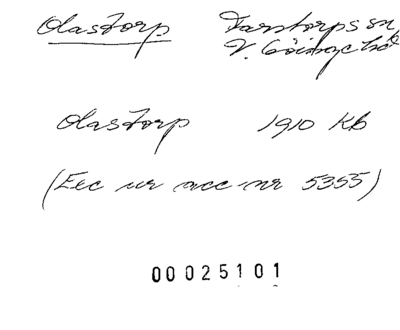 Olastorp Farstorps sn
V. Göinge hd
Olastorp 1910 KB
(Exc ur acc nr 5355)
00025101